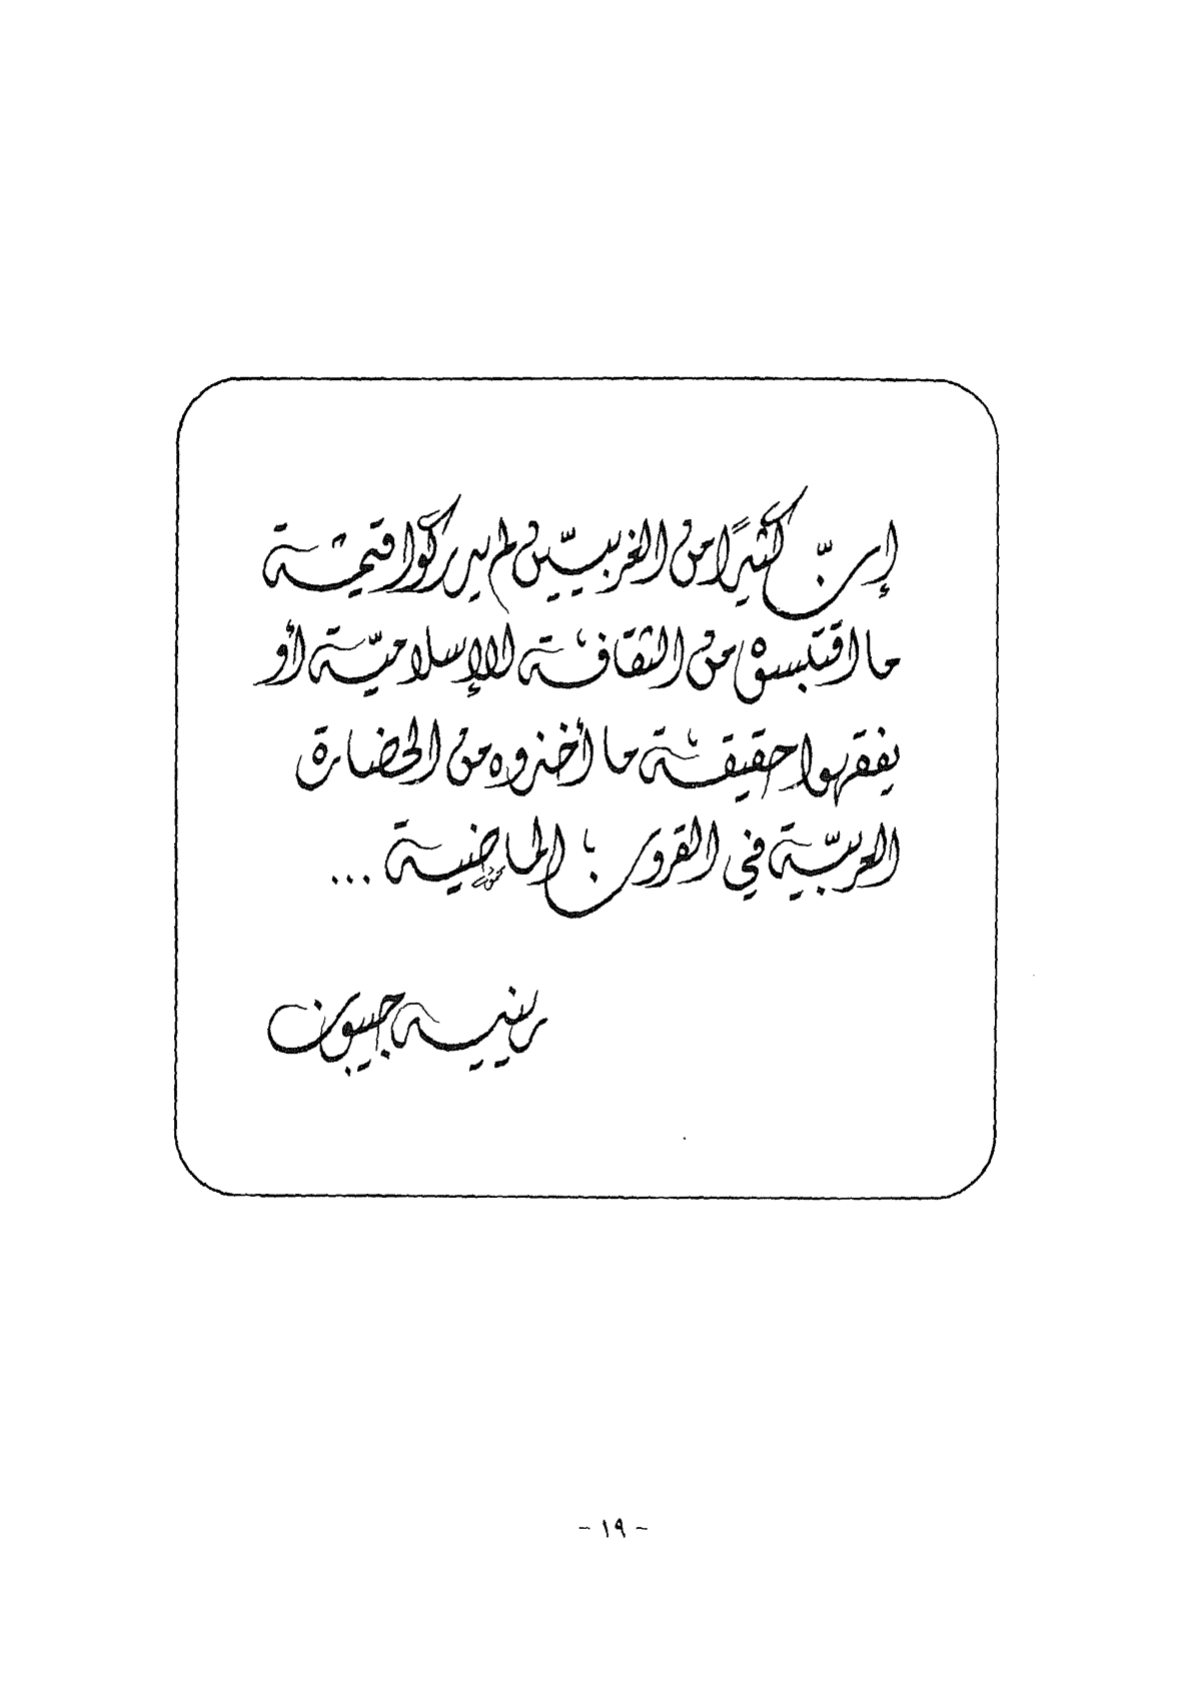 إنّ كثيرًا من الغربيّين لم يدركوا قيمة
ما اقتبسوه من الثقافة الإسلاميّة أو
يفقهوا حقيقة ما أخذوه من الحضارة
العربيّة في القرون الماضية ...
رينيه جيبون
- ١٩ -